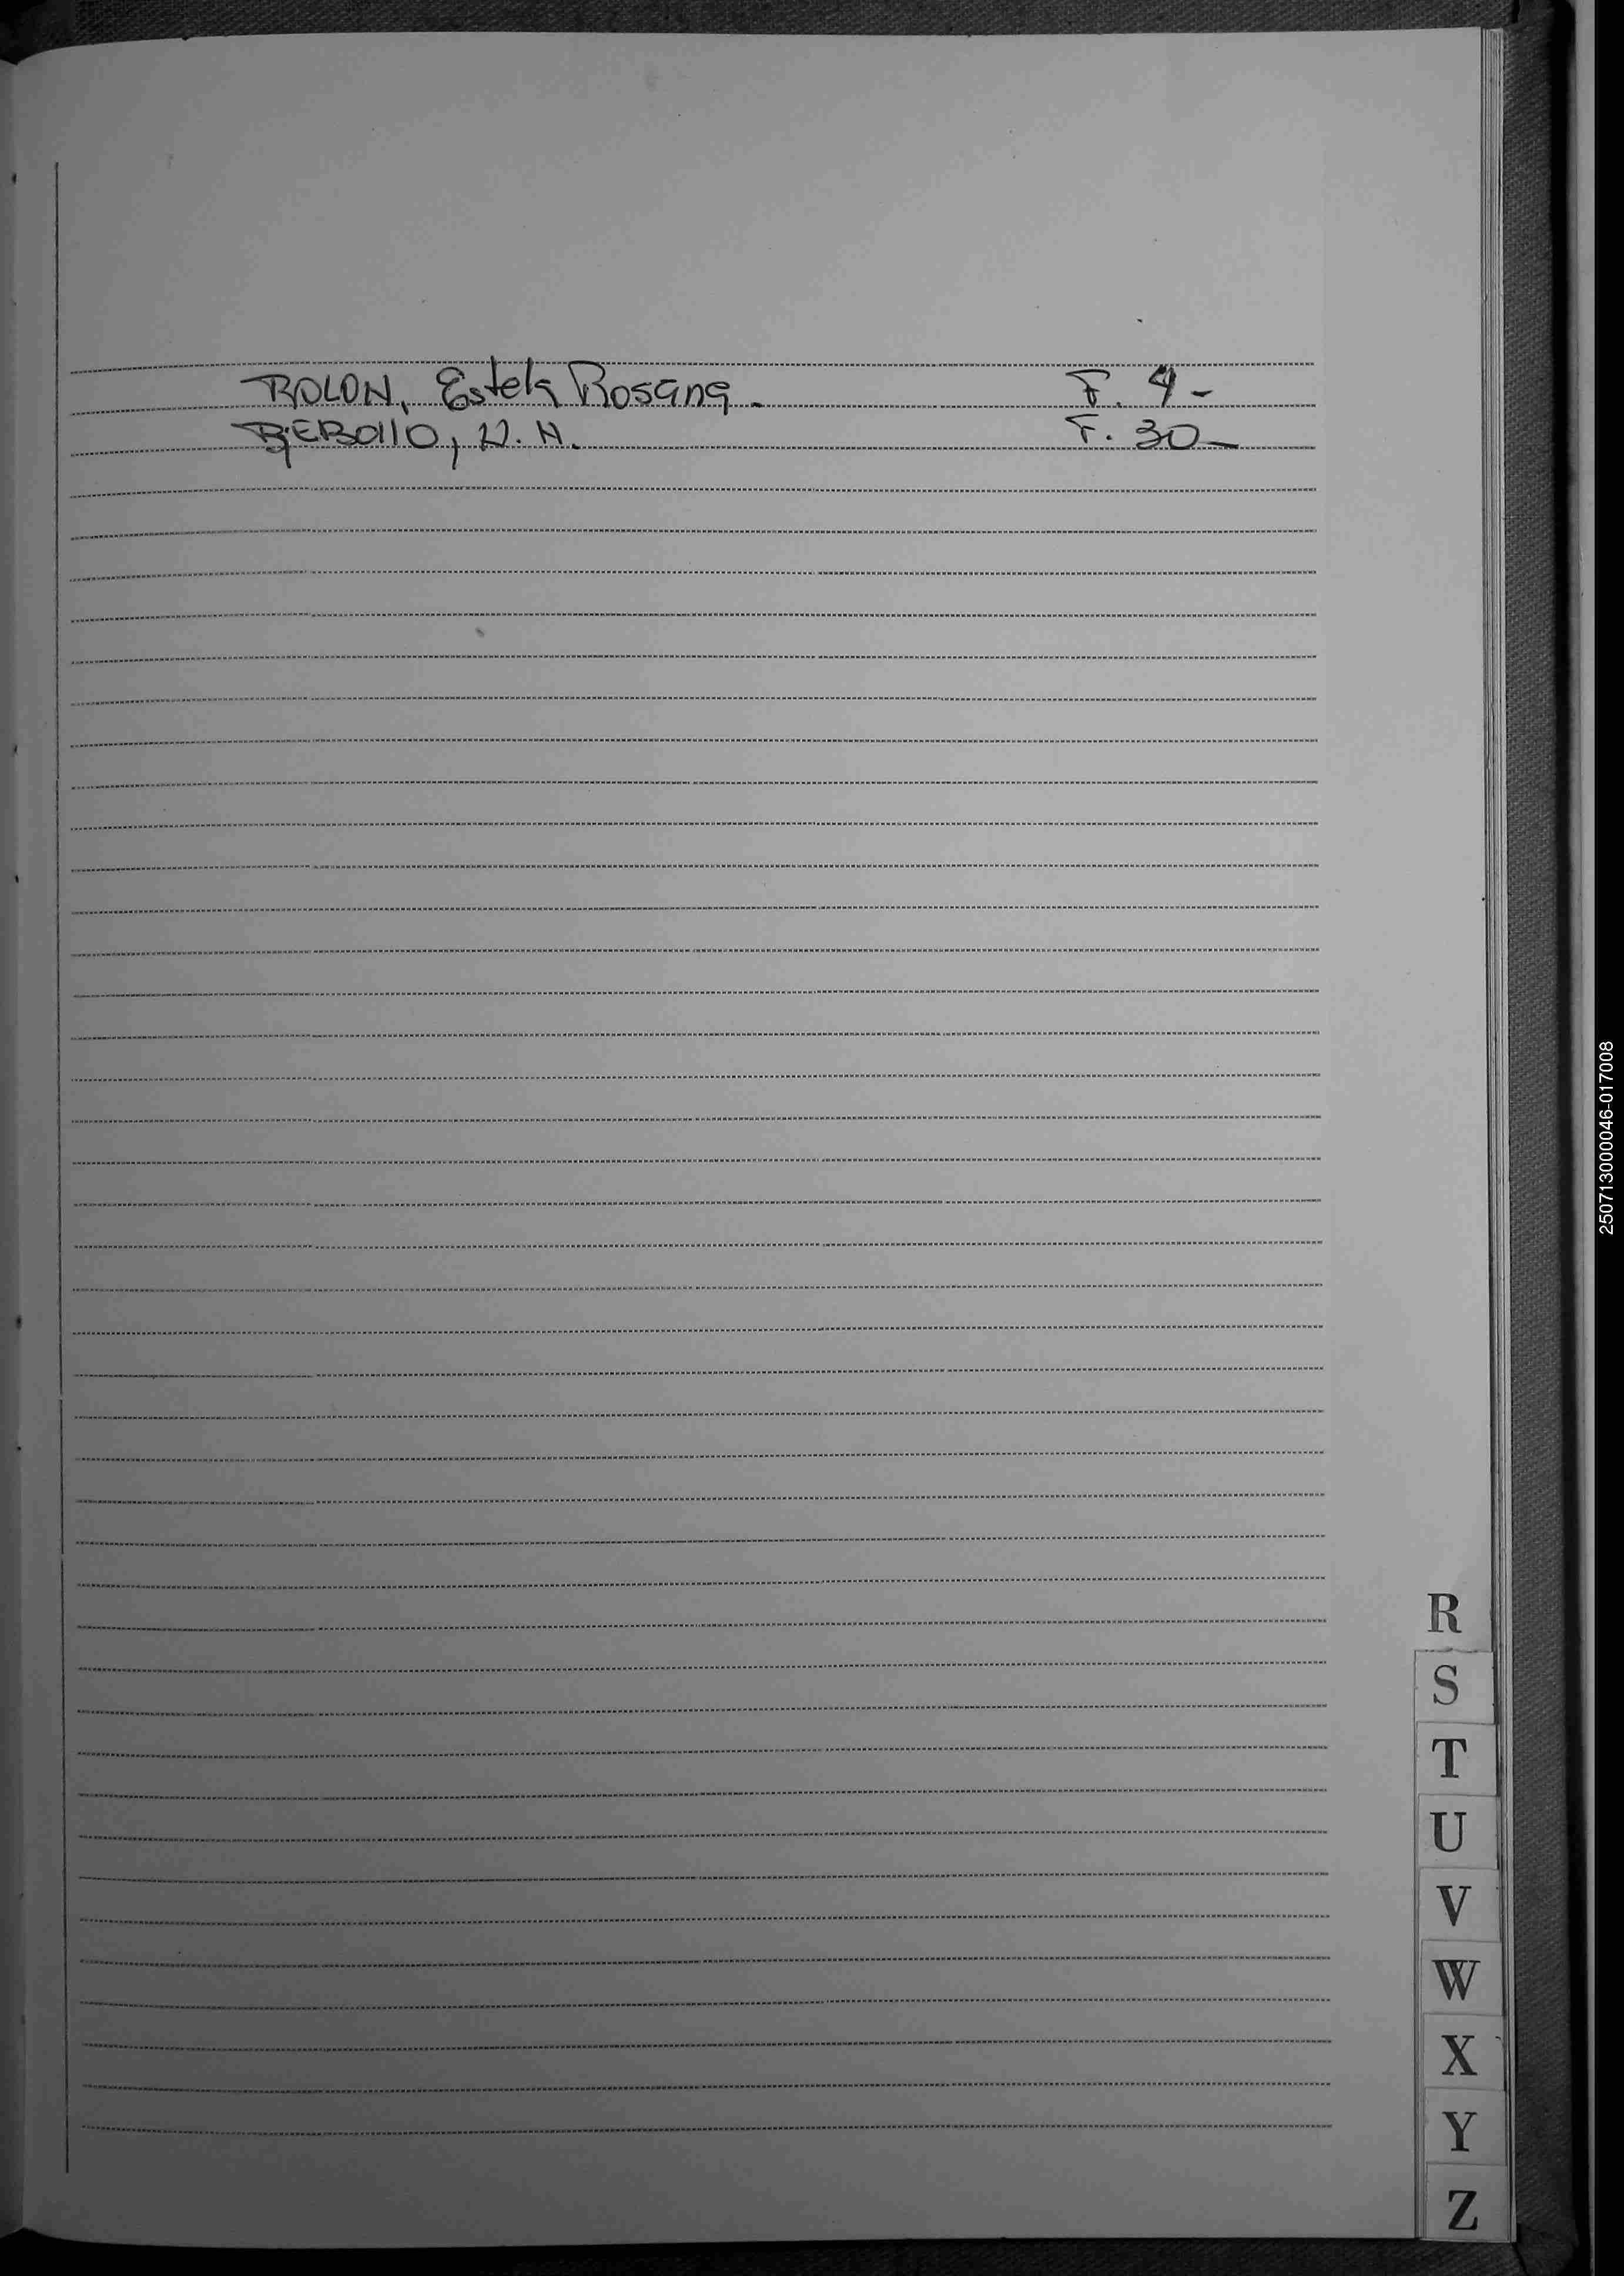 ROLON, Estela Rosana. F. 4-
REBOllO, N.N. F. 30-
R
S
T
U
V
W
X
Y
Z
250713000046-017008